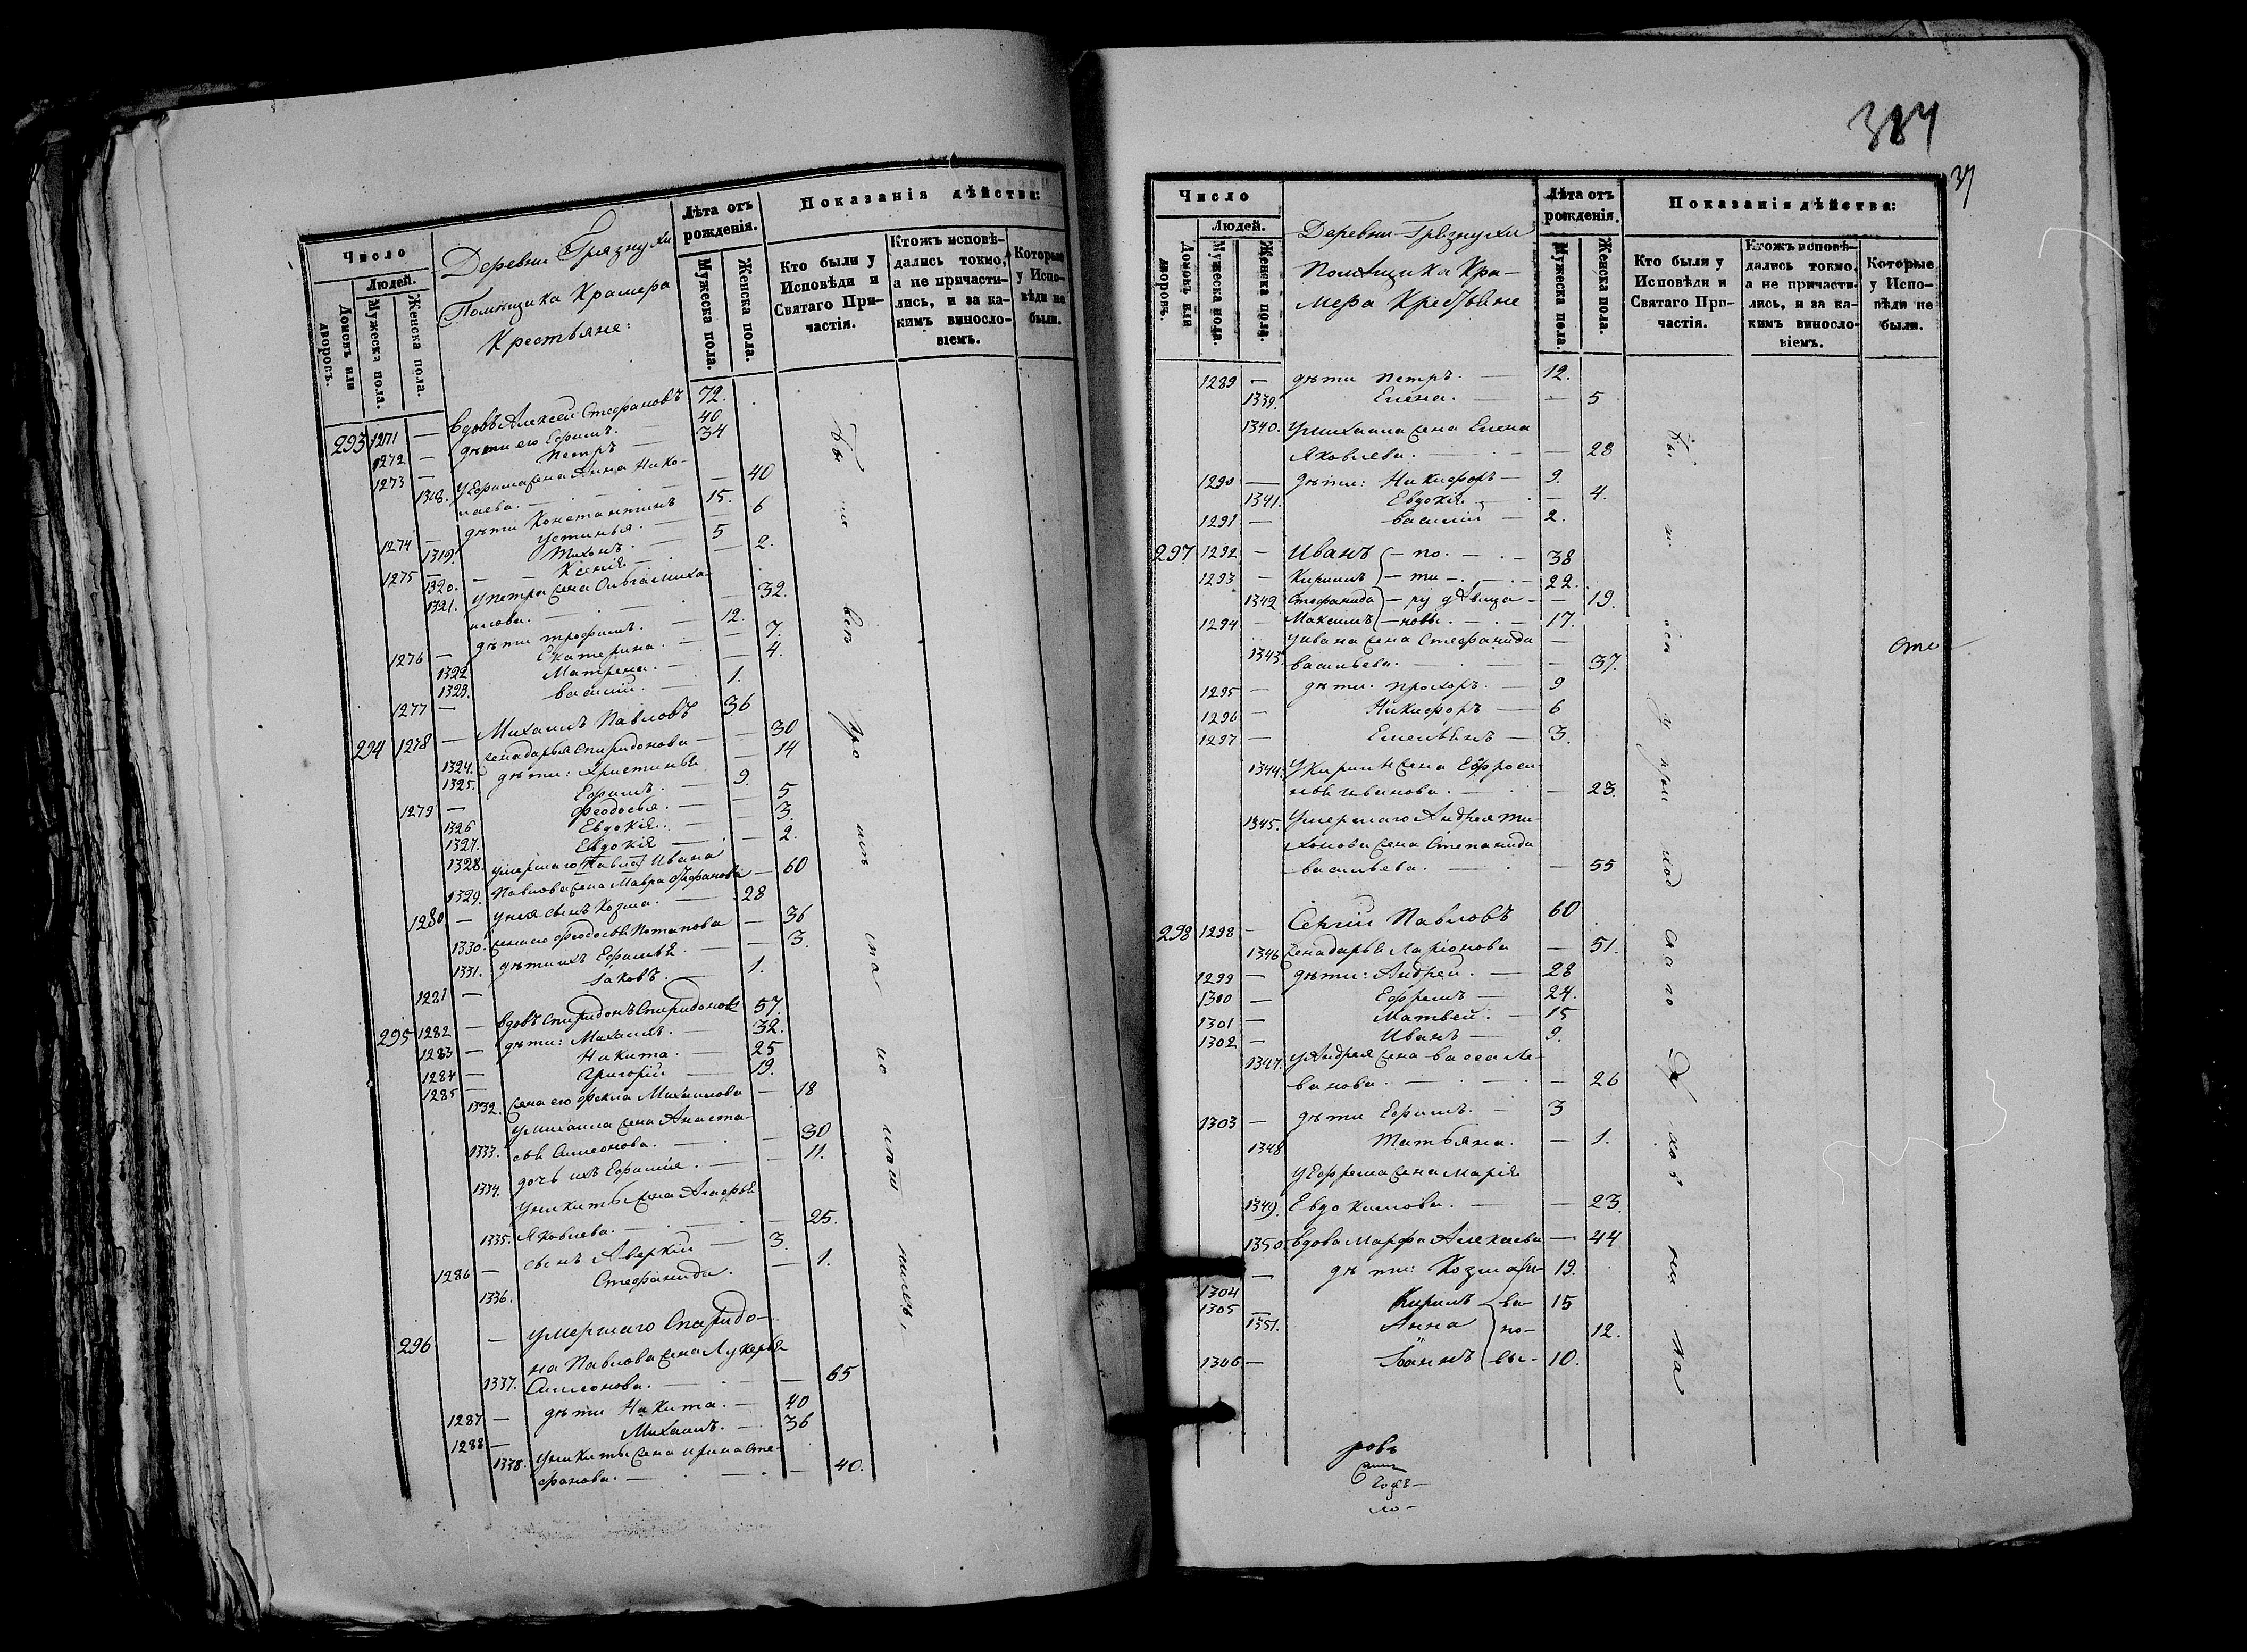 Число
Людей.
Домовъ или дворовъ.
Мужеска пола.
Женска пола.
Деревни Грязнухи
Помѣщика Крамера
Крестьяне:
Лѣта отъ рожденія.
Мужеска пола.
Женска пола.
Показанія дѣйства:
Кто были у Исповѣди и Святаго Причастія.
Ктожъ исповѣдались токмо, а не причастились, и за какимъ винословіемъ.
Которые у Исповѣди не были.
293 1271 — вдовъ Алексей Стефановъ 72.
1272 — дѣти его Ефимъ. — 40
1273 — Петръ — 34
1318. у Ефима жена Анна Нико-
лаева. — — 40
1274 — дѣти Константинъ 15.
1319. Устинья. — — 6
1275 — Тихонъ. — 5
1320. — — Ксенія — — 2.
1321. у Петра жена Ольга Миха-
илова. — — 32.
1276 — дѣти Трофимъ. — 12.
1322 Екатерина. — — 7.
1323. Матрена. — — 4.
1277 — Василій. — 1.
294 1278 — Михаилъ Павловъ 36
1324. жена Дарья Спиридонова — — 30
1325. дѣти: Христинья — 14
1279 — Ефимъ. — 9.
1326 Феодосья. — — 5
1327. Евдокія. — — 3.
1328. Евдокія — — 2.
умершаго Ивана
1329. Павлова жена Мавра — 60
1280 — у нея сынъ Козма. — 28
1330. жена его Феодосья Потапова — 36
1331. дѣти ихъ Ефимья. — — 3.
1281 — Іаковъ. — 1.
295 1282 — вдовъ Спиридонъ Спиридоновъ 57.
1283 — дѣти: Михаилъ. — 32.
1284 — Никита. — 25
1285 — Григорій — 19.
1332. жена его Фекла Михаилова — 18
у Михаила жена Анаста-
1333. сья Симеонова. — — 30
1334. дочь ихъ Ефимія. — — 11.
у Никиты жена Агафья
1335. Яковлева. — — 25.
1286 — сынъ Аверкій — 3.
1336. Стефанида. — 1.
296 — умершаго Спиридо-
на Павлова жена Лукерья
1337. Симеонова. — — 65
1287 — дѣти Никита. — 40
1288 — Михаилъ. — 36
1338. у Никиты жена Ирина Сте-
фанова. — — 40.
384
37
Число
Людей.
Домовъ или дворовъ.
Мужеска пола.
Женска пола.
Деревни Грязнухи
Помѣщика Кра-
мера Крестьяне
Лѣта отъ рожденія.
Мужеска пола.
Женска пола.
Показанія дѣйства:
Кто были у Исповѣди и Святаго Причастія.
Ктожъ исповѣдались токмо, а не причастились, и за какимъ винословіемъ.
Которые у Исповѣди не были.
1289 — дѣти Петръ. — 12.
1339. Елена. — — 5
1340. у Михаила жена Елена
Яковлева. — — 28
1290 — дѣти: Никифоръ — 9.
1341. Евдокія. — — 4.
1291 — Василій — 2.
297 1292 — Иванъ — по. — 38
1293 — Кириллъ — ти — 22.
1342 Стефанида — ру дѣвица — — 19.
1294 — Максимъ — новы. — 17.
у Ивана жена Стефанида —
1343. Васильева. — — 37.
1295 — дѣти. Прохоръ. — 9
1296 — Никифоръ — 6
1297 — Емельянъ — 3.
1344. у Кирилы жена Ефроси-
нья Иванова. — — 23.
1345. Умершаго Андрея Ти-
хонова жена Степанида
Васильева. — — 55
298 1298 — Сергій Павловъ 60
1346 жена Дарья Ларіонова — 51.
1299 — дѣти: Андрей. — 28
1300 — Ефремъ — 24.
1301 — Матвей. — 15
1302 — Иванъ — 9.
1347. у Андрея жена Васса Ле-
ванова. — — 26
1303 — дѣти Ефимъ. — 3
1348 Татьяна. — 1.
у Ефрема жена Марія
1349. Евдокимова. — — 23.
1350. вдова Марфа Алексеева — 44
— дѣти: Козма 19.
1304
1305 — Кирилъ ва- 15
1351. Анна но- 12.
1306 — Іоаннъ вы- 10.